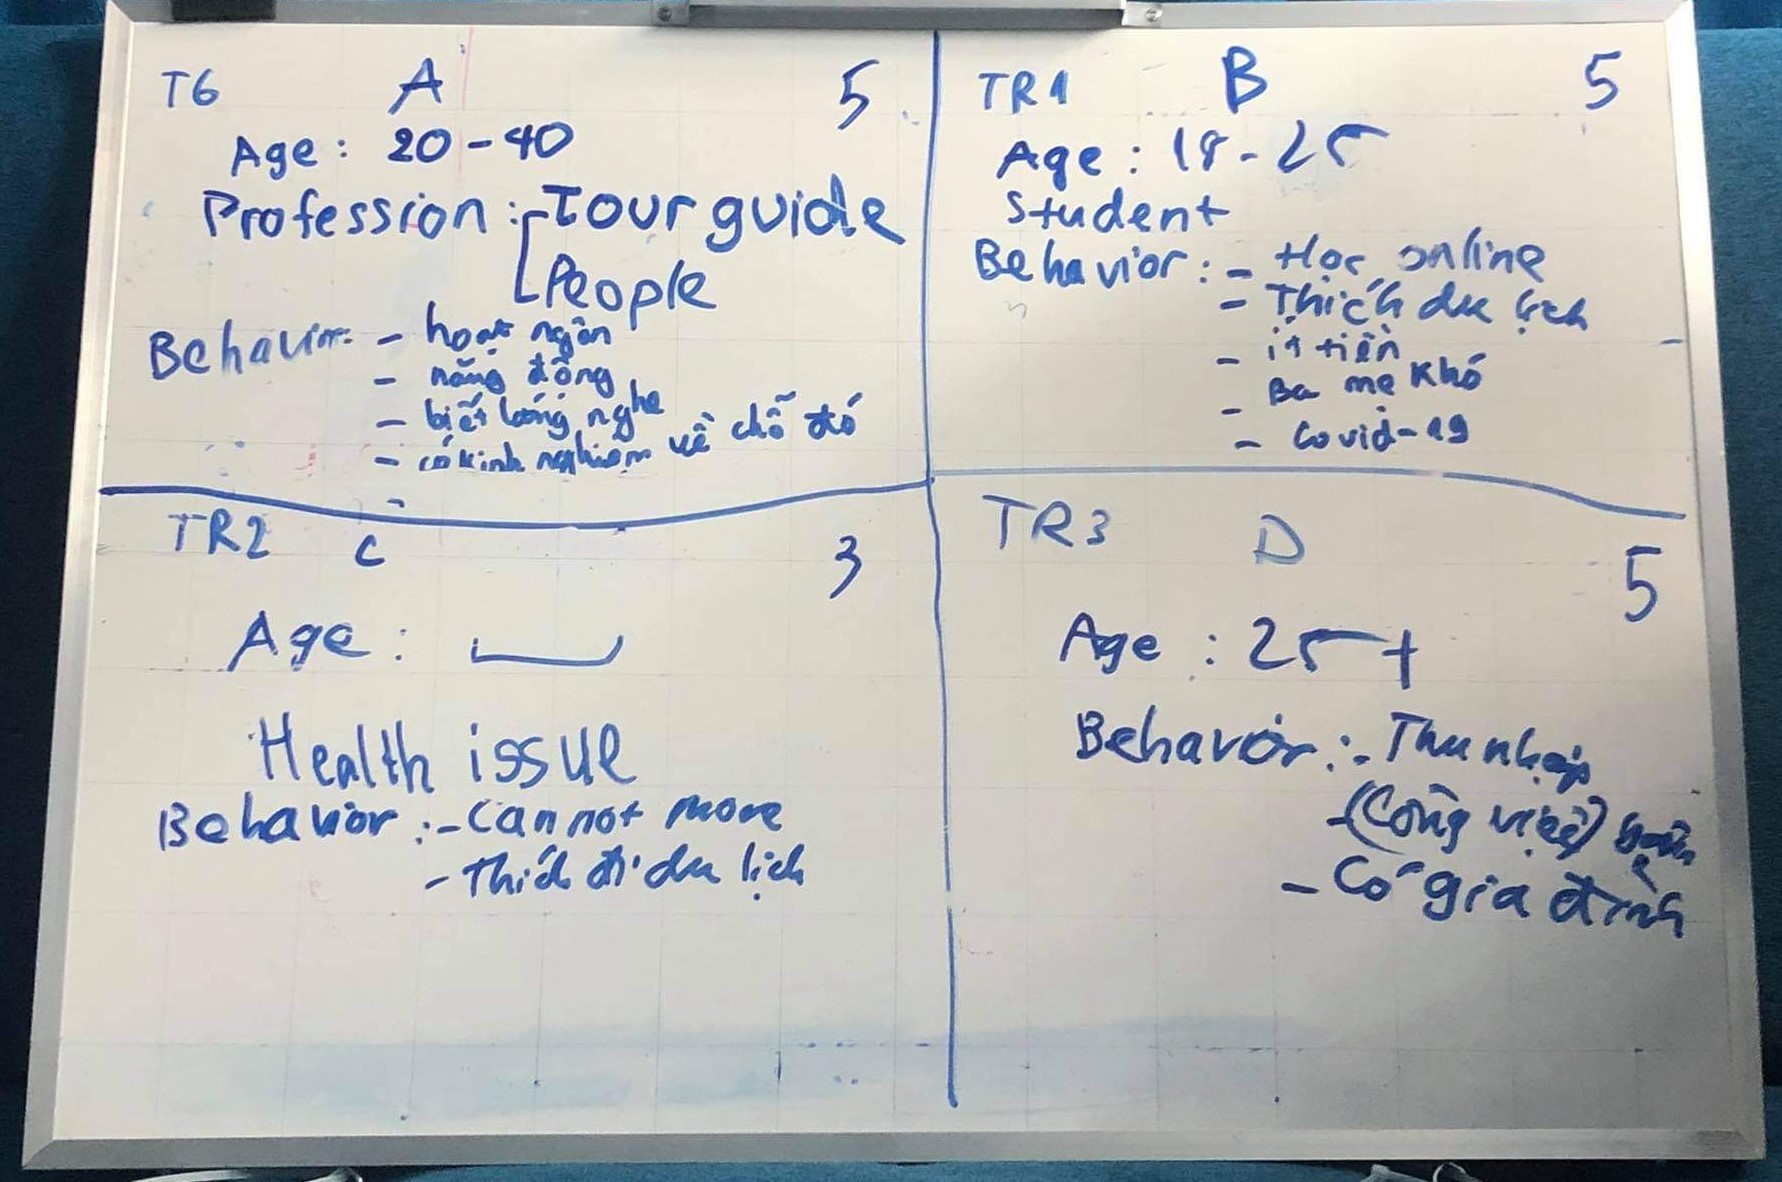 T6 A 5
Age: 20-40
Profession: Tour guide
People
Behavior: - hoạt ngôn
- năng động
- biết lắng nghe
- có kinh nghiệm về chỗ đó
TR1 B 5
Age: 18-25
Student
Behavior: - Học online
- Thích du lịch
- ít tiền
- Ba mẹ khó
- Covid-19
TR2 C 3
Age:
Health issue
Behavior: - Cannot move
- Thích đi du lịch
TR3 D 5
Age: 25+
Behavior: - Thu nhập
- (Công việc)
- Có gia đình